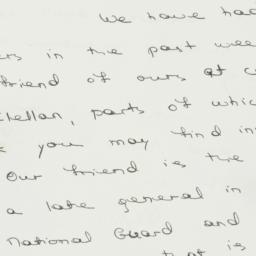 we have had
in the past wee
friend of ours at c
, parts of whic
you may find in
our friend is the
a late general in
national Guard and
is